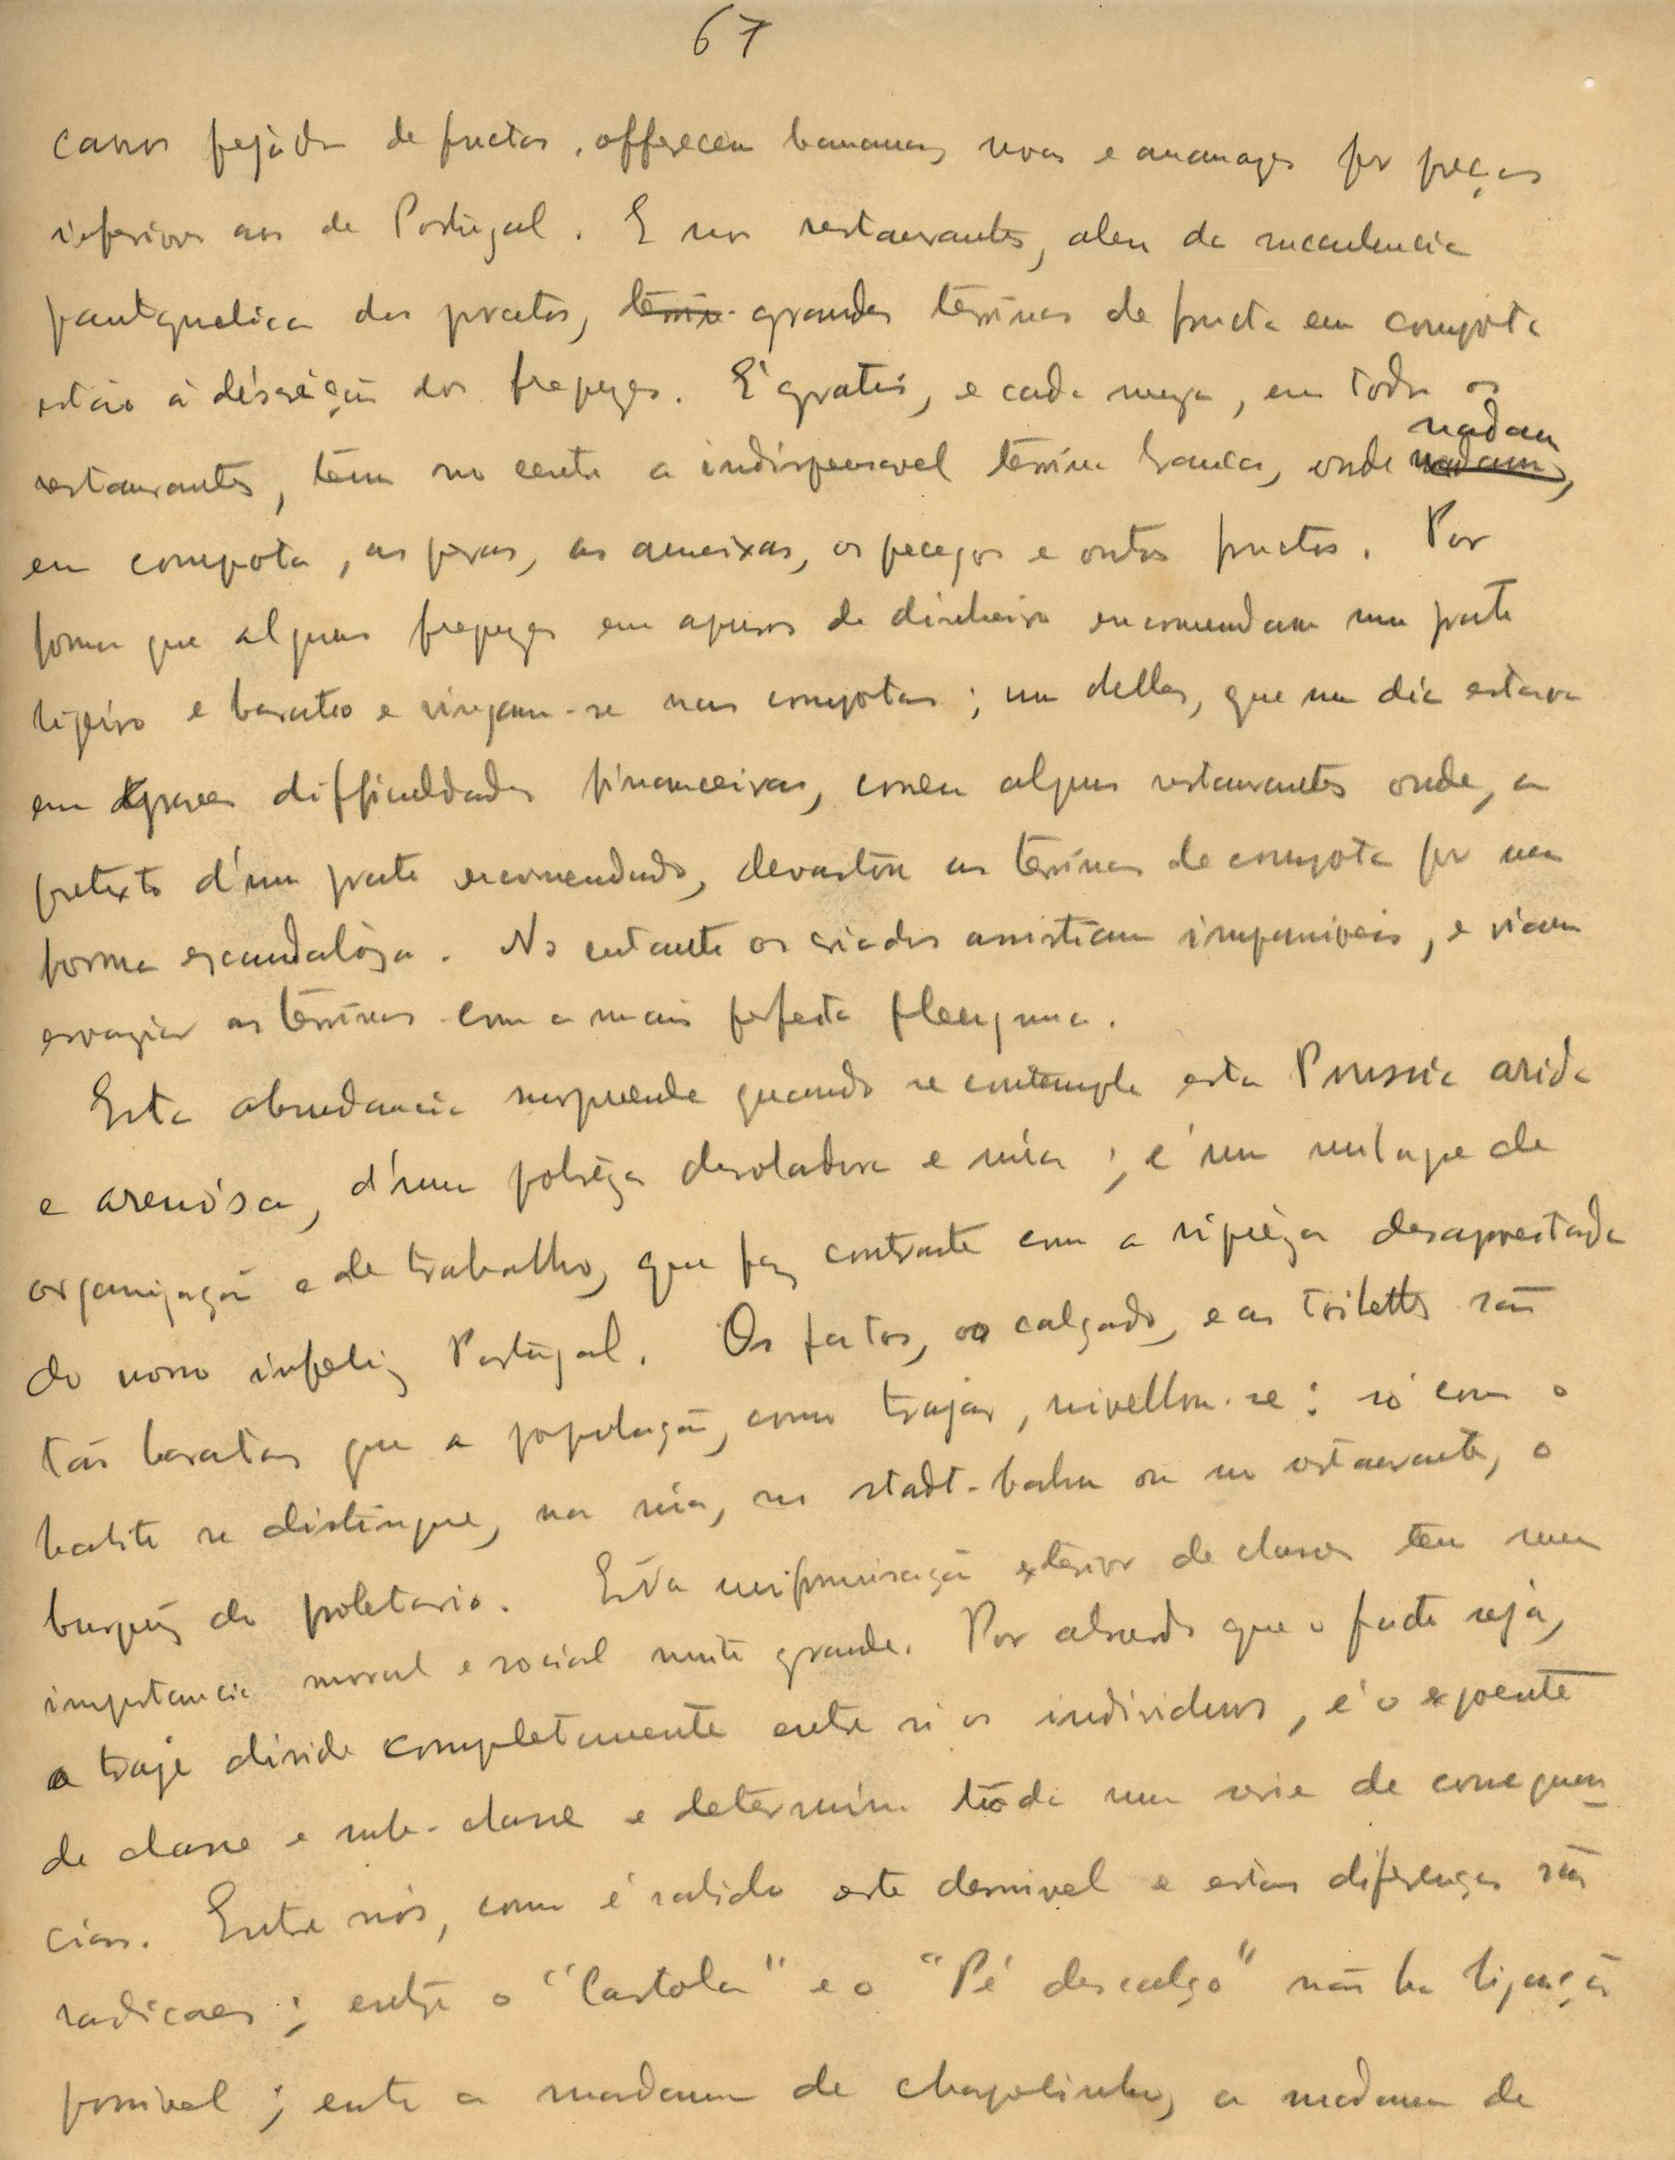 67
carros pejados de fructas, offerecem bananas, uvas e ananazes por preços
inferiores aos de Portugal. E nos restaurantes, alem da succulencia
pantagruelica dos pratos, terri- grandes terrinas de fructa em compota
estão á discrição dos freguezes. É gratis, e cada meza, em todos os
restaurantes, tem no centro a indispensavel terrina branca, onde nadam nadam,
em compota, as peras, as ameixas, os pecegos e outros fructos. Por
forma que alguns freguezes em apuros de dinheiro encomendam um prato
ligeiro e barato e vingam-se nas compotas; um delles, que um dia estava
em graves difficuldades financeiras, correu alguns restaurantes onde, a
pretexto d'um prato encomendado, devastou as terrinas de compota por uma
forma escandalósa. No entanto os criados assistiam impassiveis, e viam
esvaziar as terrinas com a mais perfeita fleugma.
Esta abundancia surprende quando se contempla esta Prussia arida
e arenósa, d'uma pobrêza desoladora e núa; é um milagre de
organização e de trabalho, que faz contraste com a riquêza desaproveitada
do nosso infeliz Portugal. Os fatos, o calçado, e as toilettes são
tão baratas que a população, como trajar, nivellou-se: só com o
habito se distingue, na rua, no stadt-bahn ou no restaurante, o
burguez do proletario. Esta uniformisação exterior de classes tem uma
importancia moral e social muito grande. Por absurdo que o facto seja,
o traje divide completamente entre si os individuos, é o expoente
de classe e sub-classe e determina tôda uma serie de consequen-
cias. Entre nós, como é sabido este desnivel e estas diferenças são
radicaes; entre o "Cartola" e o "Pé descalço" não ha ligação
possivel; entre a madama de chapelinho, a madama de